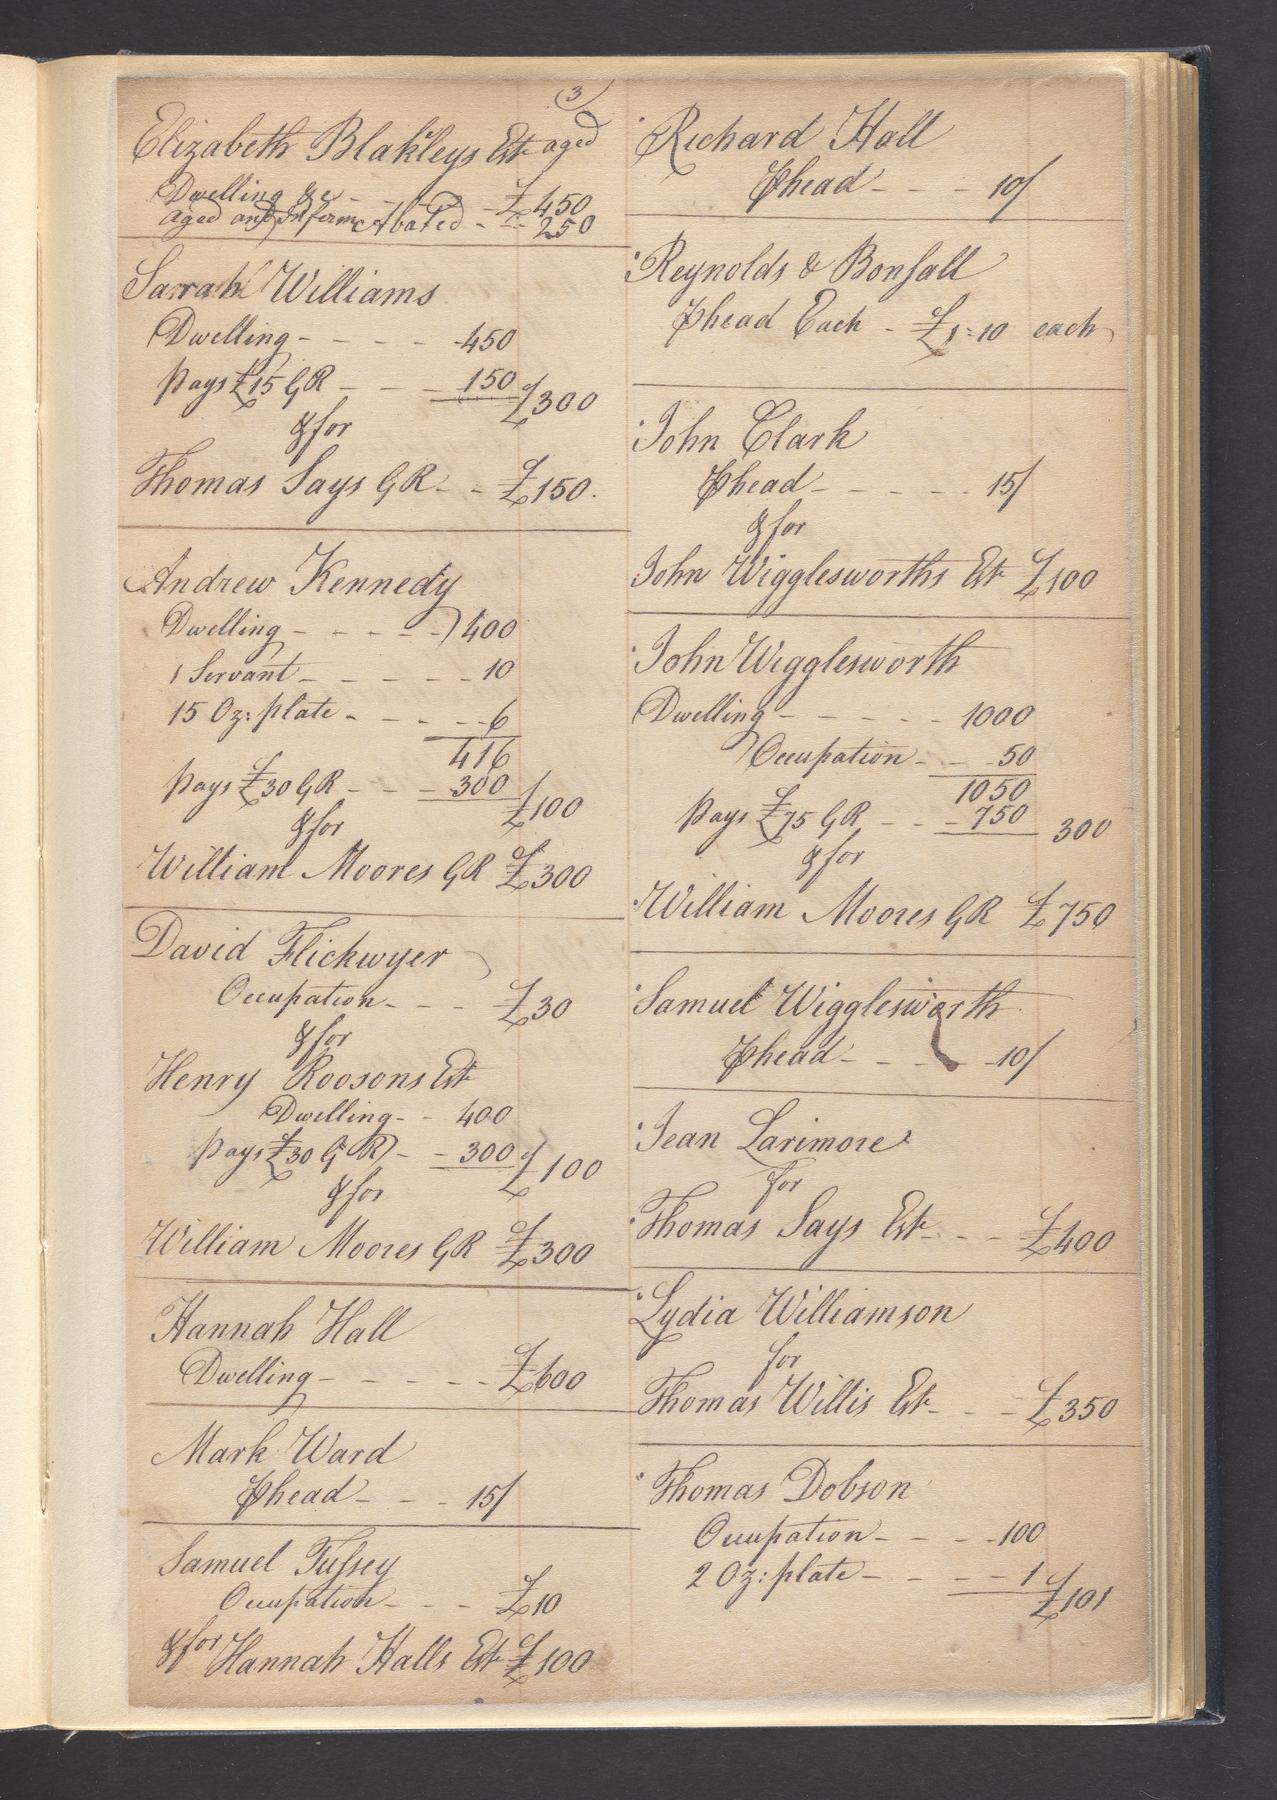 3
Elizabeth Blakleys Est aged
Dwelling &c - - - - £450
aged and Infirm Abated - - 250
Sarrah Williams
Dwelling - - - - - 450
pays £15 GR - - - 150 £300
& for
Thomas Says GR - - £150.
Andrew Kennedy
Dwelling - - - - - 400
1 Servant - - - - - - 10
15 Oz: plate - - - - - 6
416
pays £30 GR - - - 300 £100
& for
William Moores GR £300
David Flickwyer
Occupation - - - £30
& for
Henry Roosons Est
Dwelling - - 400
pays £30 GR - - 300 £100
& for
William Moores GR £300
Hannah Hall
Dwelling - - - - - - £600
Mark Ward
⅌head - - - 15/
Samuel Tufsey
Occupation - - - £10
& for Hannah Halls Est £100
Richard Hall
⅌head - - - 10/
Reynolds & Bonsall
⅌head Each - £1:10 each
John Clark
⅌head - - - - - 15/
& for
John Wigglesworths Est £100
John Wigglesworth
Dwelling - - - - - 1000
Occupation - - - 50
1050
pays £75 GR - - - 750 300
& for
William Moores GR £750
Samuel Wigglesworth
⅌head - - - - 10/
Jean Larimore
for
Thomas Says Est - - - £400
Lydia Williamson
for
Thomas Willis Est - - - £350
Thomas Dobson
Occupation - - - - 100
2 Oz: plate - - - - - 1 £101